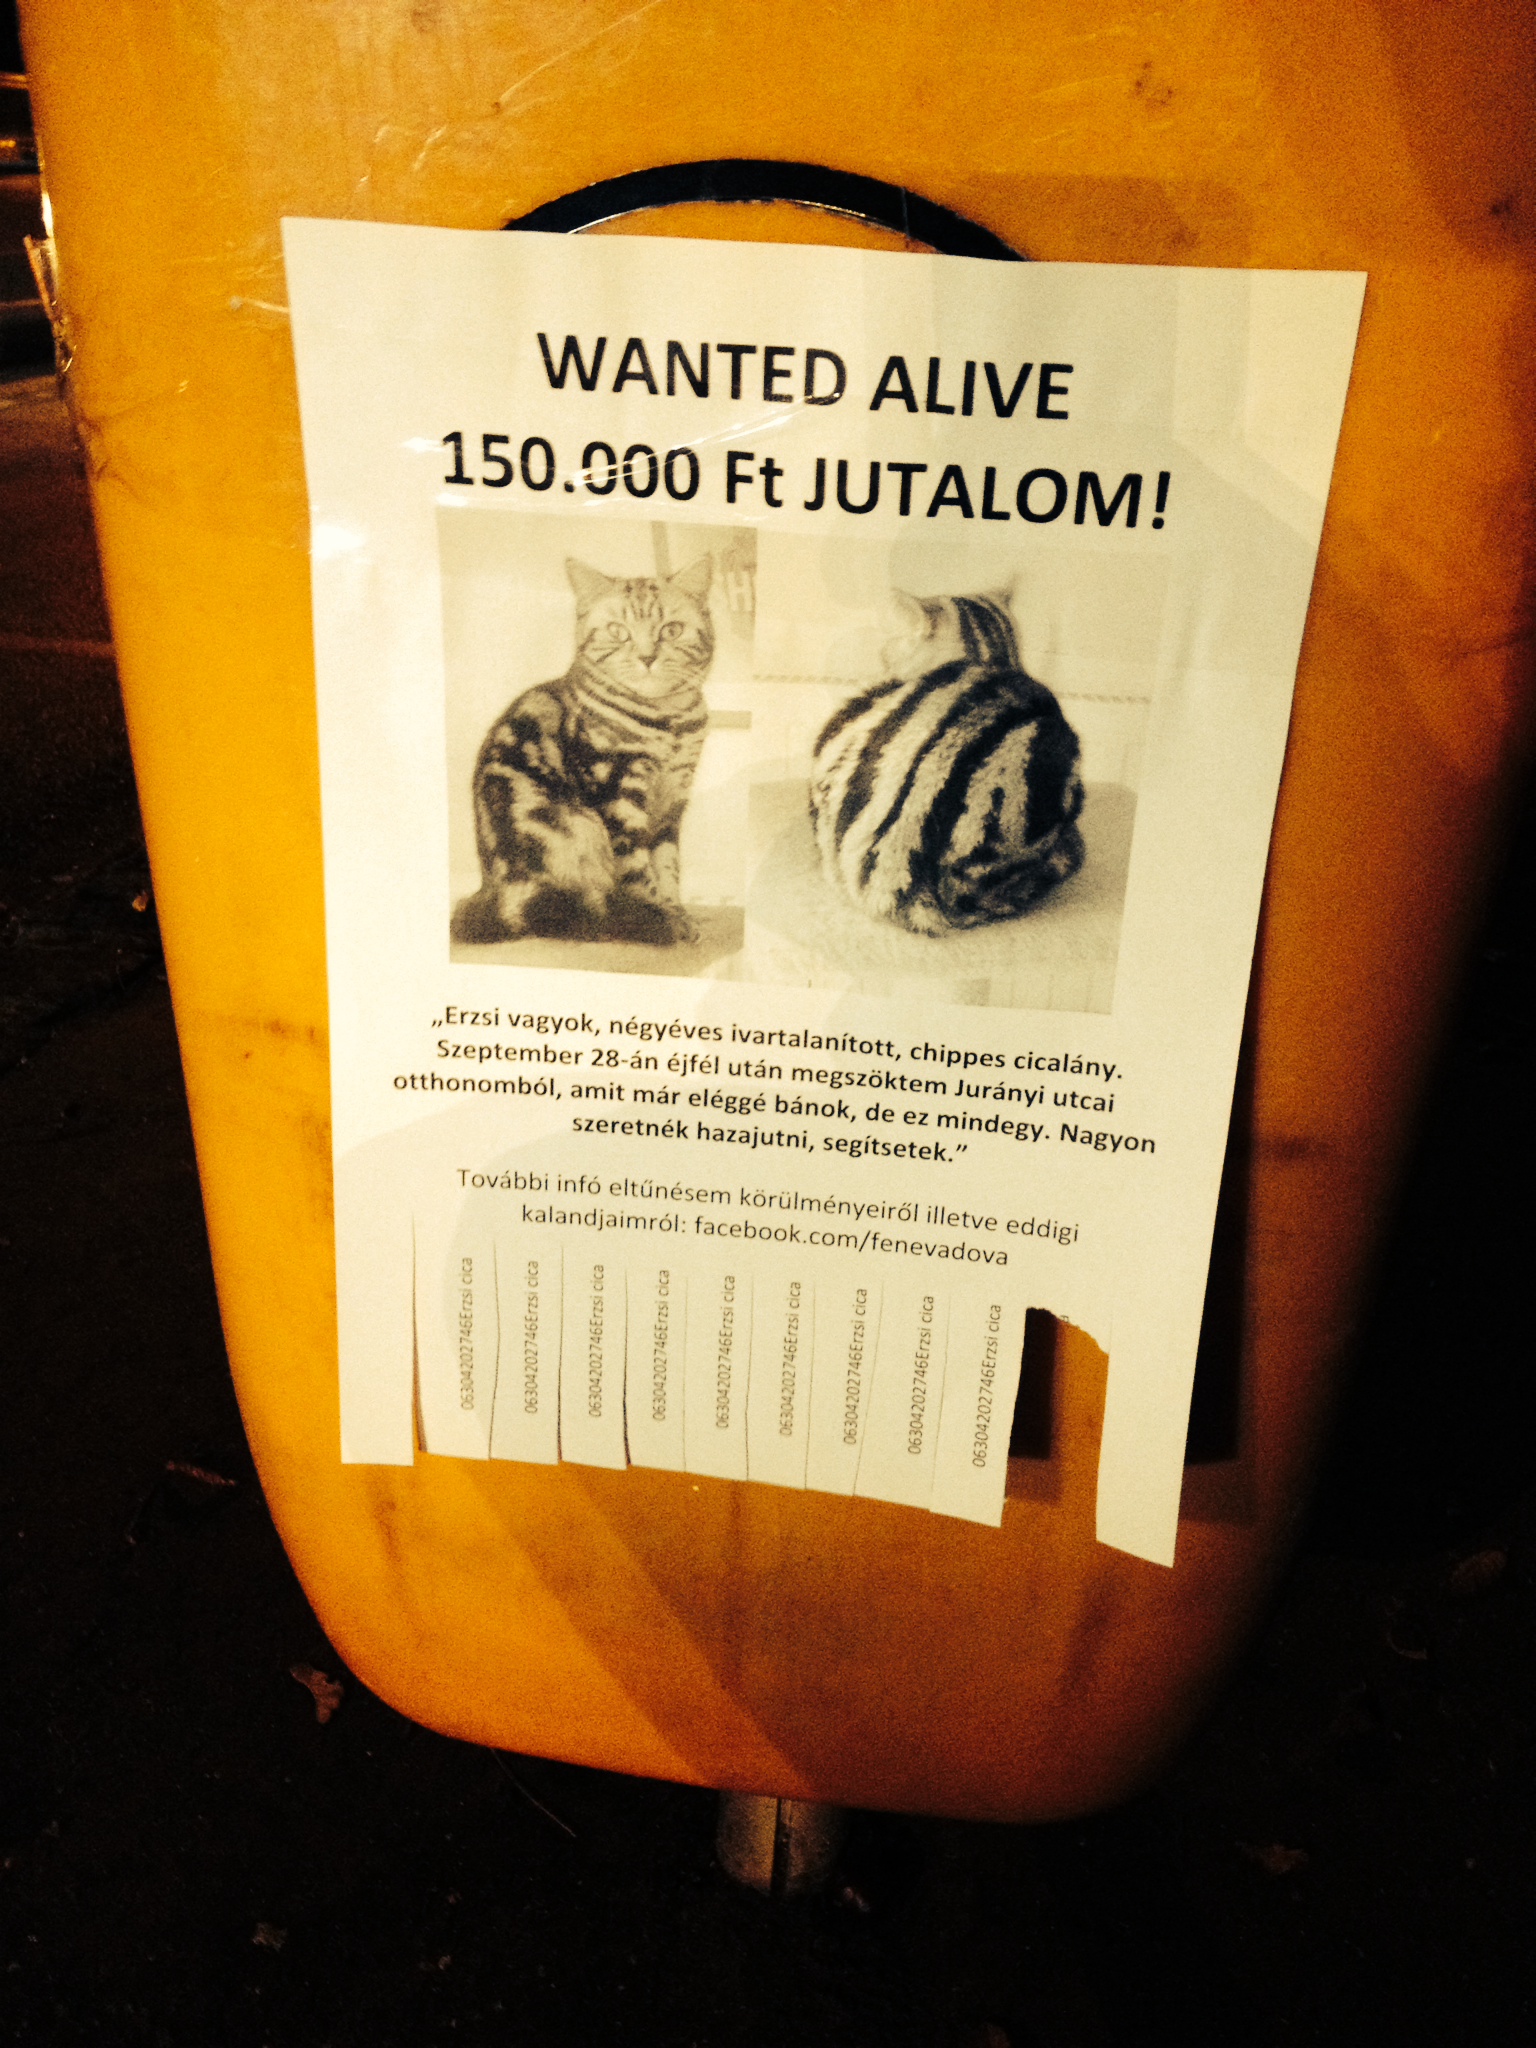 WANTED ALIVE
150.000 Ft JUTALOM!
„Erzsi vagyok, négyéves ivartalanított, chippes cicalány.
Szeptember 28-án éjfél után megszöktem Jurányi utcai
otthonomból, amit már eléggé bánok, de ez mindegy. Nagyon
szeretnék hazajutni, segítsetek.”
További infó eltűnésem körülményeiről illetve eddigi
kalandjaimról: facebook.com/fenevadova
06304202746Erzsi cica
06304202746Erzsi cica
06304202746Erzsi cica
06304202746Erzsi cica
06304202746Erzsi cica
06304202746Erzsi cica
06304202746Erzsi cica
06304202746Erzsi cica
06304202746Erzsi cica